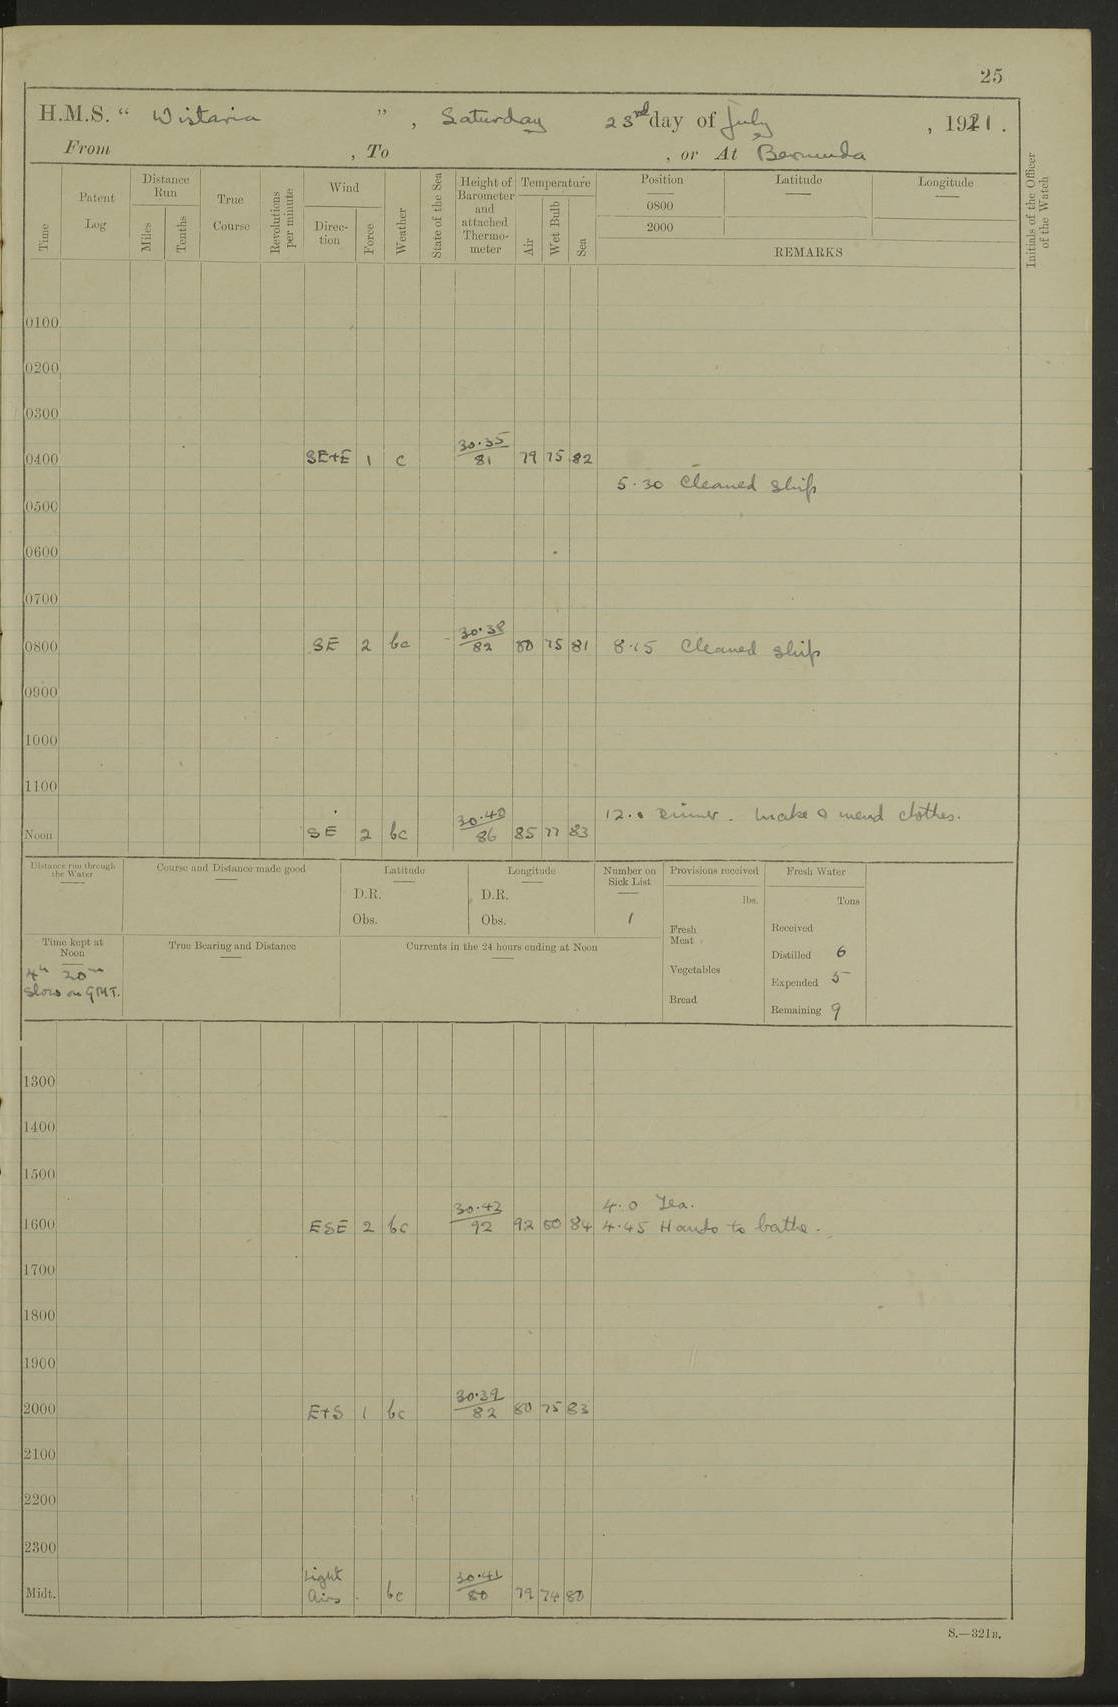 25
H.M.S. “ Wistaria ” , Saturday 23rd day of July , 1921 .
From , To , or At Bermuda
Time
Patent Log
Distance Run
Miles
Tenths
True Course
Revolutions per minute
Wind
Direc-tion
Force
Weather
State of the Sea
Height of Barometer and attached Thermo-meter
Temperature
Air
Wet Bulb
Sea
Position Latitude Longitude
0800
2000
REMARKS
Initials of the Officer of the Watch
0100
0200
0300
0400 SE+E 1 c 30.35/81 79 75 82
5.30 Cleaned ship
0500
0600
0700
0800 SE 2 bc 30.38/82 80 75 81 8.15 Cleaned ship
0900
1000
1100
12.0 Dinner. Make & mend clothes.
Noon SE 2 bc 30.40/86 85 77 83
Distance run through the Water
Course and Distance made good
Latitude
D.R.
Obs.
Longitude
D.R.
Obs.
Number on Sick List
1
Provisions received
lbs.
Fresh Meat
Vegetables
Bread
Fresh Water
Tons
Received
Distilled 6
Expended 5
Remaining 9
Time kept at Noon
4h 20m
Slow on GMT.
True Bearing and Distance
Currents in the 24 hours ending at Noon
1300
1400
1500
4.0 Tea.
1600 ESE 2 bc 30.43/92 92 80 84 4.45 Hands to bathe.
1700
1800
1900
2000 E+S 1 bc 30.39/82 80 75 83
2100
2200
2300
Midt. Light Airs bc 30.41/80 79 74 80
S.—321B.